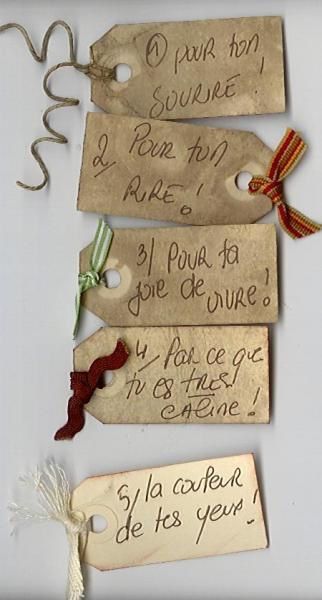 1 pour ton
SOURIRE !
2/ Pour ton
RIRE !
3/ POUR ta
joie de
VIVRE !
4/ Par ce que
tu es TRES
CALINE !
5/ la couleur
de tes yeux !